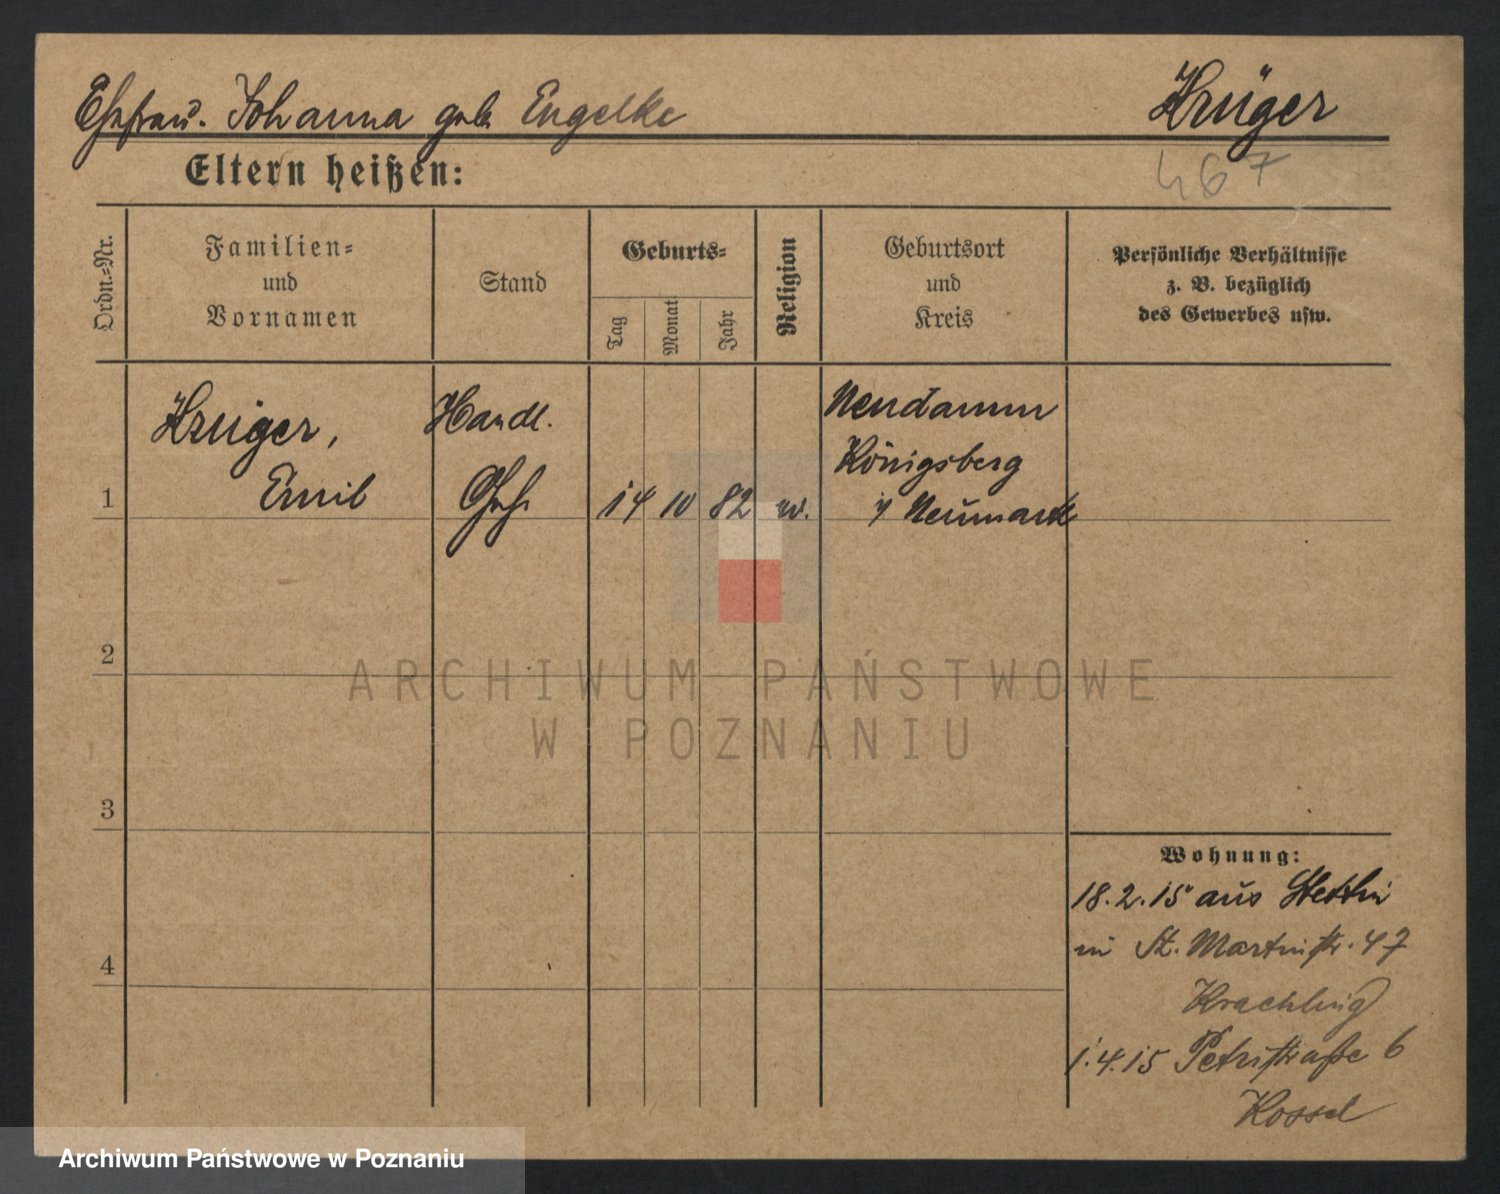 Ehefrau. Johanna geb. Engelke
Krüger
467
Eltern heißen:
Ordn.-Nr.
Familien-
und
Vornamen
Stand
Geburts-
Tag
Monat
Jahr
Religion
Geburtsort
und
Kreis
Persönliche Verhältnisse
z. B. bezüglich
des Gewerbes usw.
1
Krüger,
Emil
Handl.
Geh.
14 10 82
Neudamm
Königsberg
i/ Neumark
2
3
4
Wohnung:
18.2.15 aus Stettin
in St. Martinstr. 47
1.4.15 Petristraße 6
Kossel
ARCHIWUM PAŃSTWOWE
W POZNANIU
Archiwum Państwowe w Poznaniu